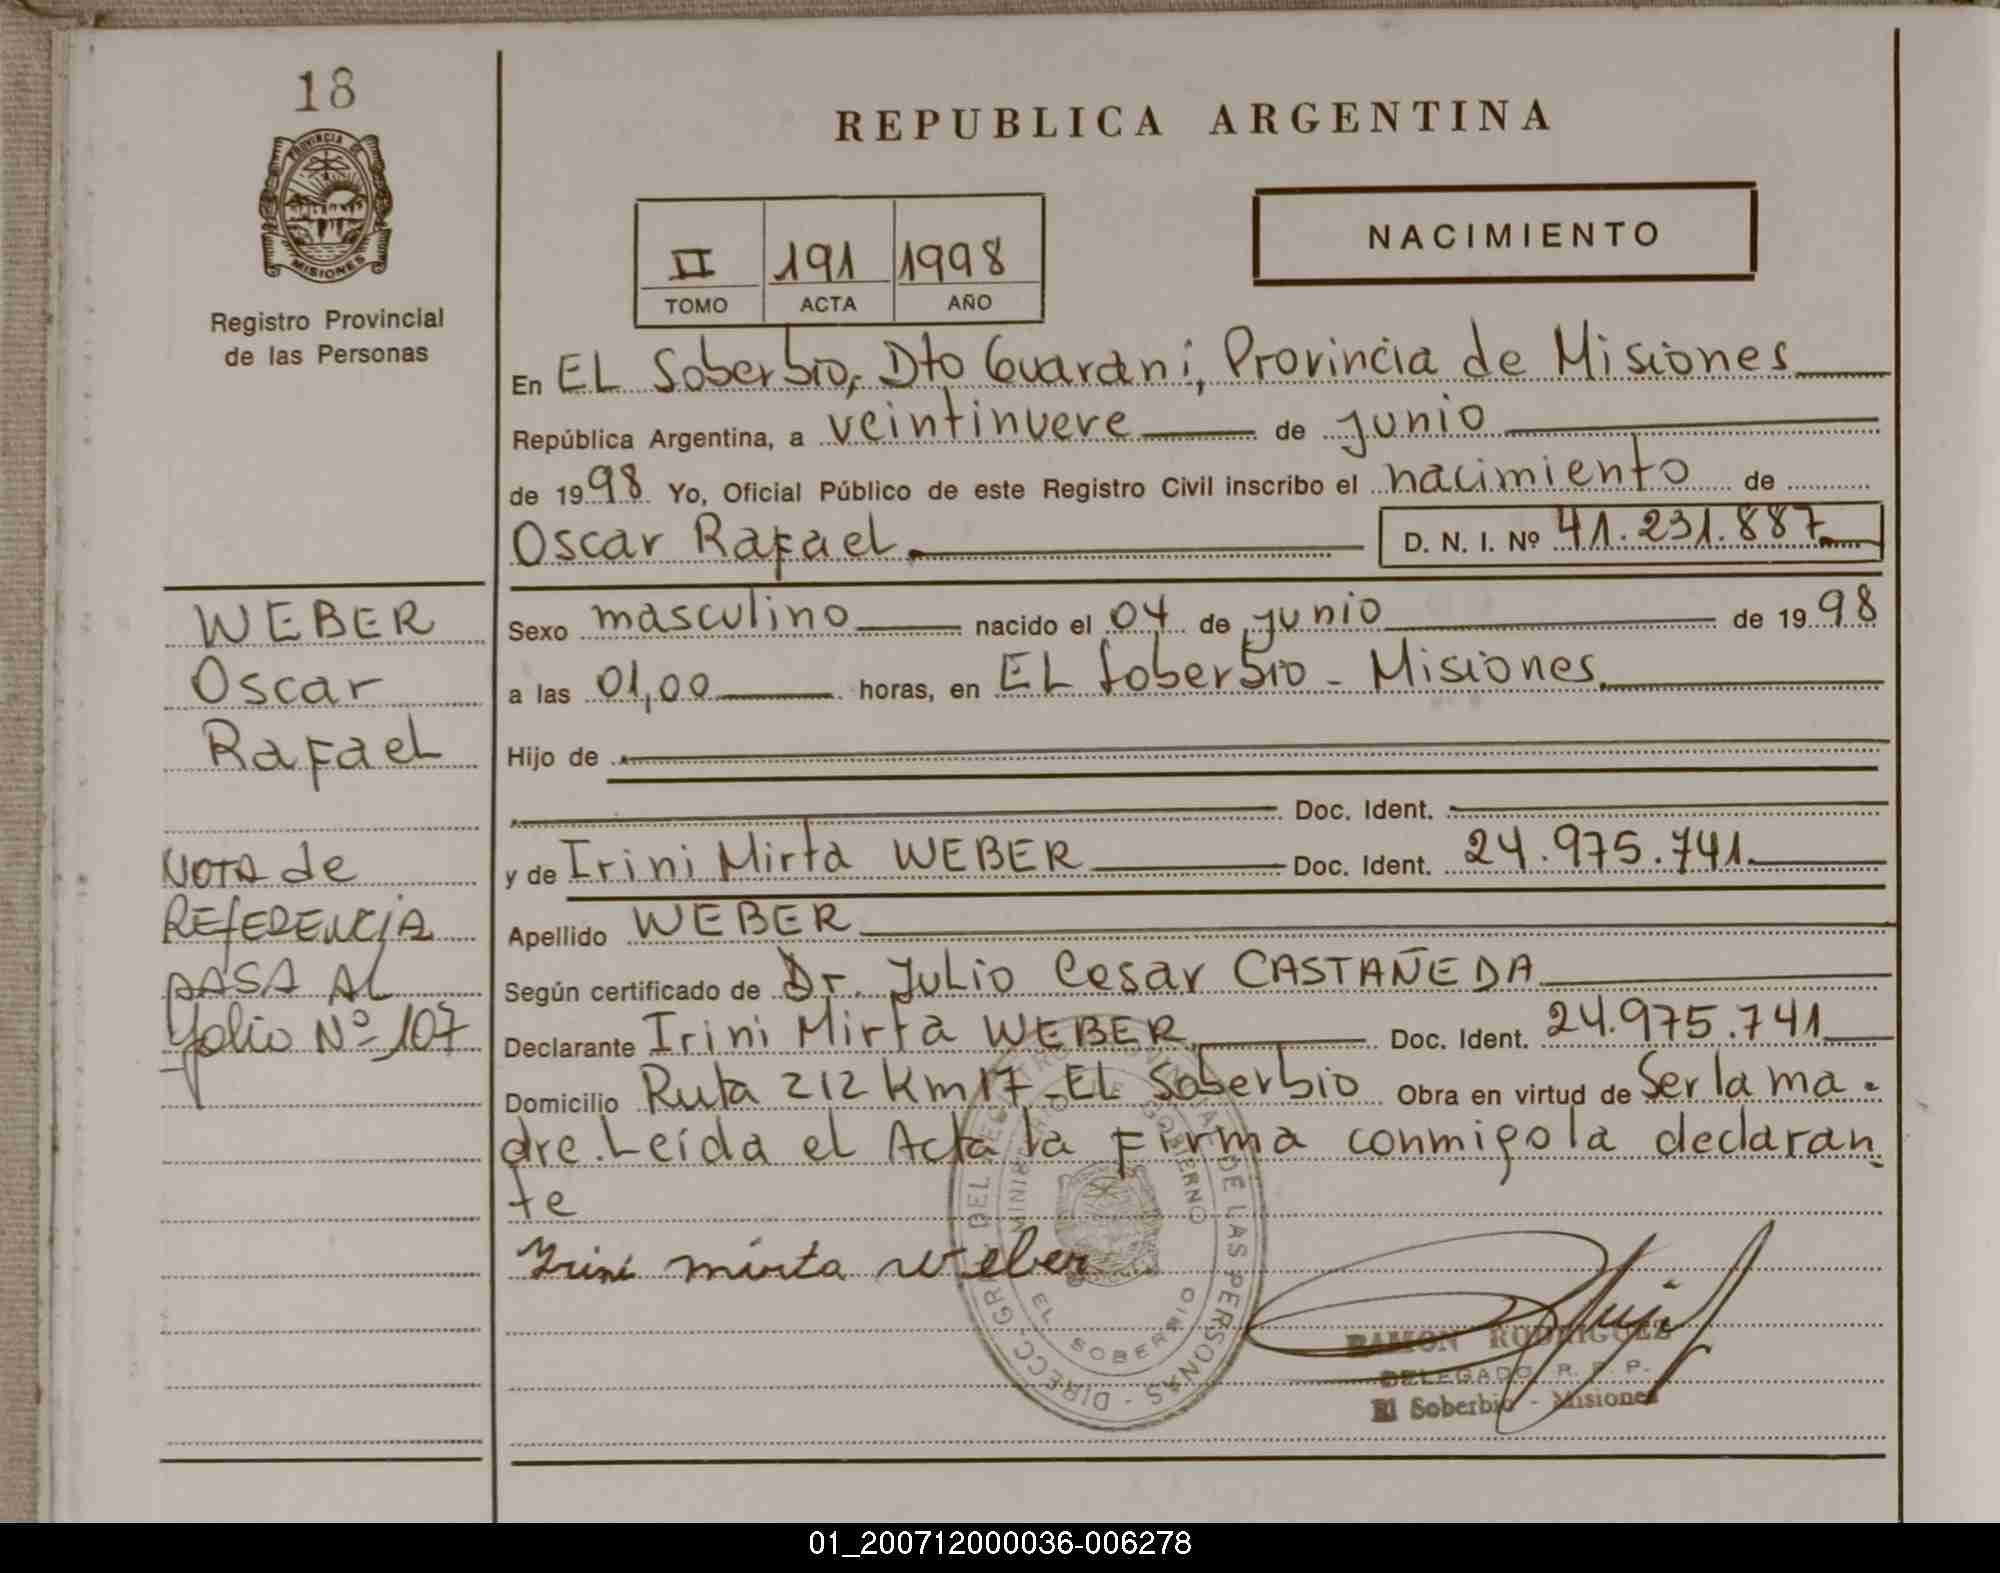 18
PROVINCIA DE
MISIONES
Registro Provincial
de las Personas
REPUBLICA ARGENTINA
II 191 1998
TOMO ACTA AÑO
NACIMIENTO
En EL Soberbio, Dto Guaraní, Provincia de Misiones
República Argentina, a veintinueve de junio
de 1998 Yo, Oficial Público de este Registro Civil inscribo el nacimiento de
Oscar Rafael. D. N. I. Nº 41.231.887
Sexo masculino nacido el 04 de junio de 1998
a las 01,00 horas, en EL Soberbio - Misiones.
Hijo de
Doc. Ident.
y de Irini Mirta WEBER Doc. Ident. 24.975.741
Apellido WEBER
Según certificado de Dr. Julio Cesar CASTAÑEDA
Declarante Irini Mirta WEBER Doc. Ident. 24.975.741
Domicilio Ruta 212 Km 17 - EL Soberbio Obra en virtud de Ser la ma-
dre. Leída el Acta la Firma conmigo la declaran-
te
Irini mirta weber
WEBER
Oscar
Rafael
NOTA de
REFERENCIA
PASA AL
folio Nº 107
DE LAS PERSONAS - DIRECC. GR
GOBIERNO
EL SOBERBIO
RAMON RODRIGUEZ
DELEGADO R. P. P.
El Soberbio - Misiones
01_200712000036-006278